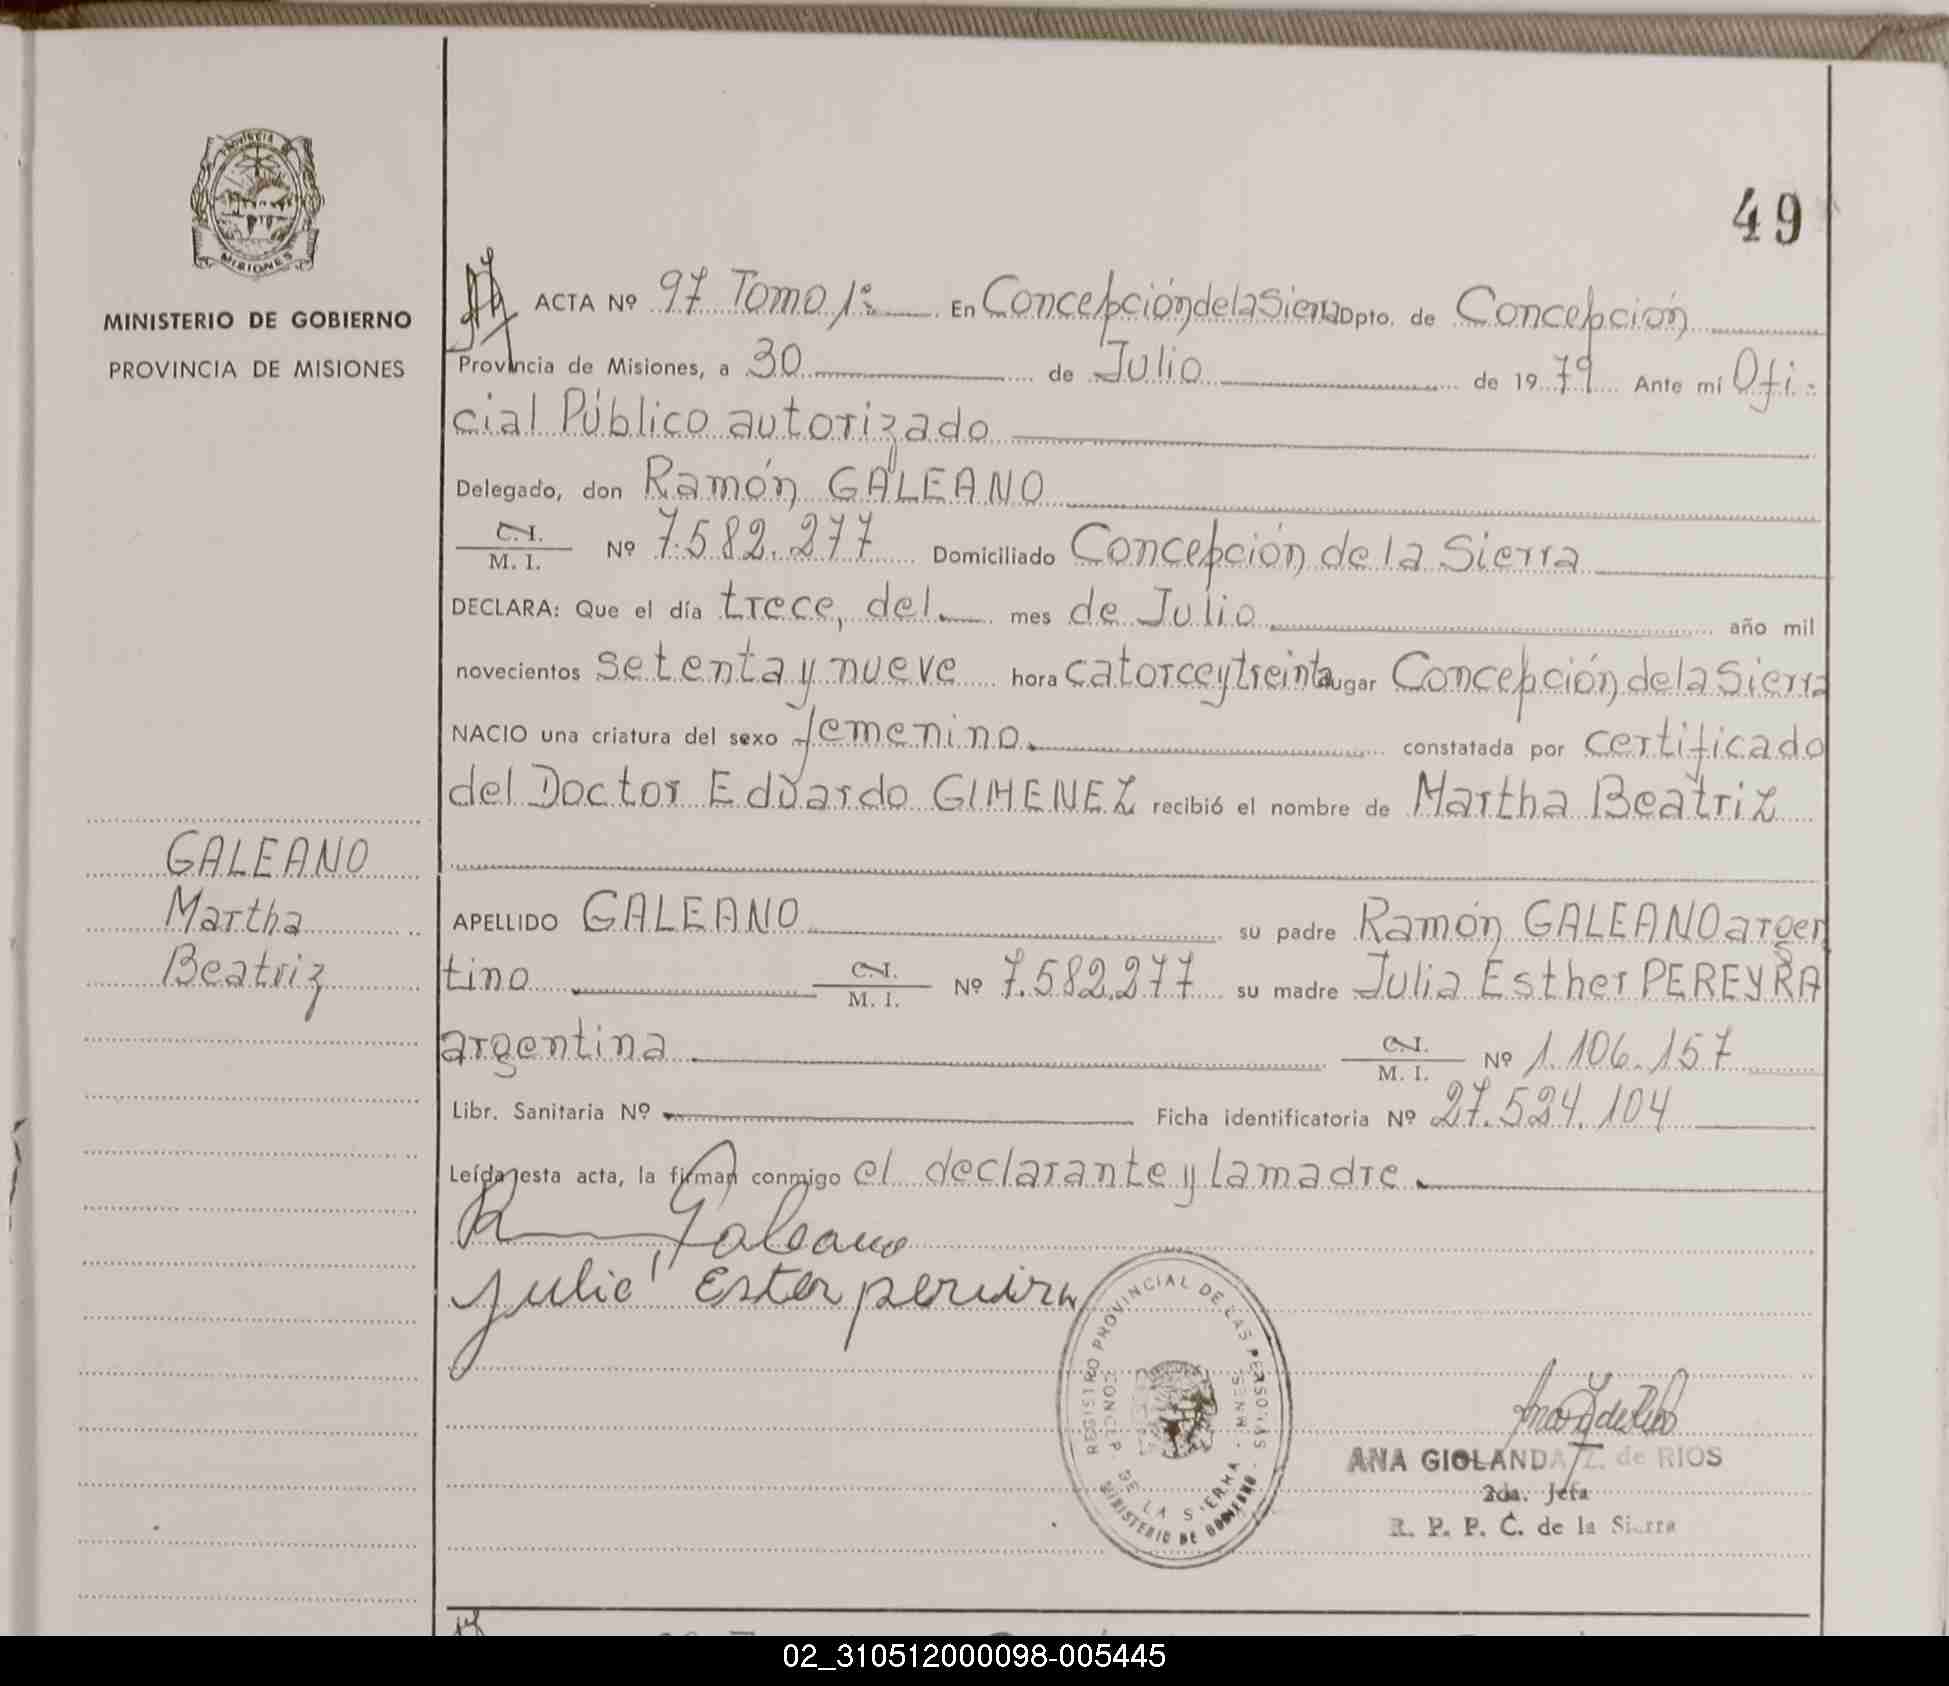 PROVINCIA DE
MISIONES
MINISTERIO DE GOBIERNO
PROVINCIA DE MISIONES
49
ACTA Nº 97 Tomo 1º En Concepción de la Sierra Dpto. de Concepción
Provincia de Misiones, a 30 de Julio de 1979 Ante mí Ofi-
cial Público autorizado
Delegado, don Ramón GALEANO
C.I. M. I. Nº 7.582.277 Domiciliado Concepción de la Sierra
DECLARA: Que el día trece, del mes de Julio año mil
novecientos setenta y nueve hora catorce y treinta lugar Concepción de la Sierra
NACIO una criatura del sexo femenino. constatada por certificado
del Doctor Eduardo GIMENEZ recibió el nombre de Martha Beatriz
GALEANO
Martha
Beatriz
APELLIDO GALEANO su padre Ramón GALEANO argen
tino C.I. M. I. Nº 7.582.277 su madre Julia Esther PEREYRA
argentina C.I. M. I. Nº 1.106.157
Libr. Sanitaria Nº Ficha identificatoria Nº 27.524.104
Leída esta acta, la firman conmigo el declarante y la madre.
R Galeano
Julia Ester pereira
REGISTRO PROVINCIAL DE LAS PERSONAS
CONCEP. DE LA SIERRA - MNES.
MINISTERIO DE GOBIERNO
ANA GIOLANDA Z. de RIOS
2da. Jefa
R. P. P. C. de la Sierra
02_310512000098-005445